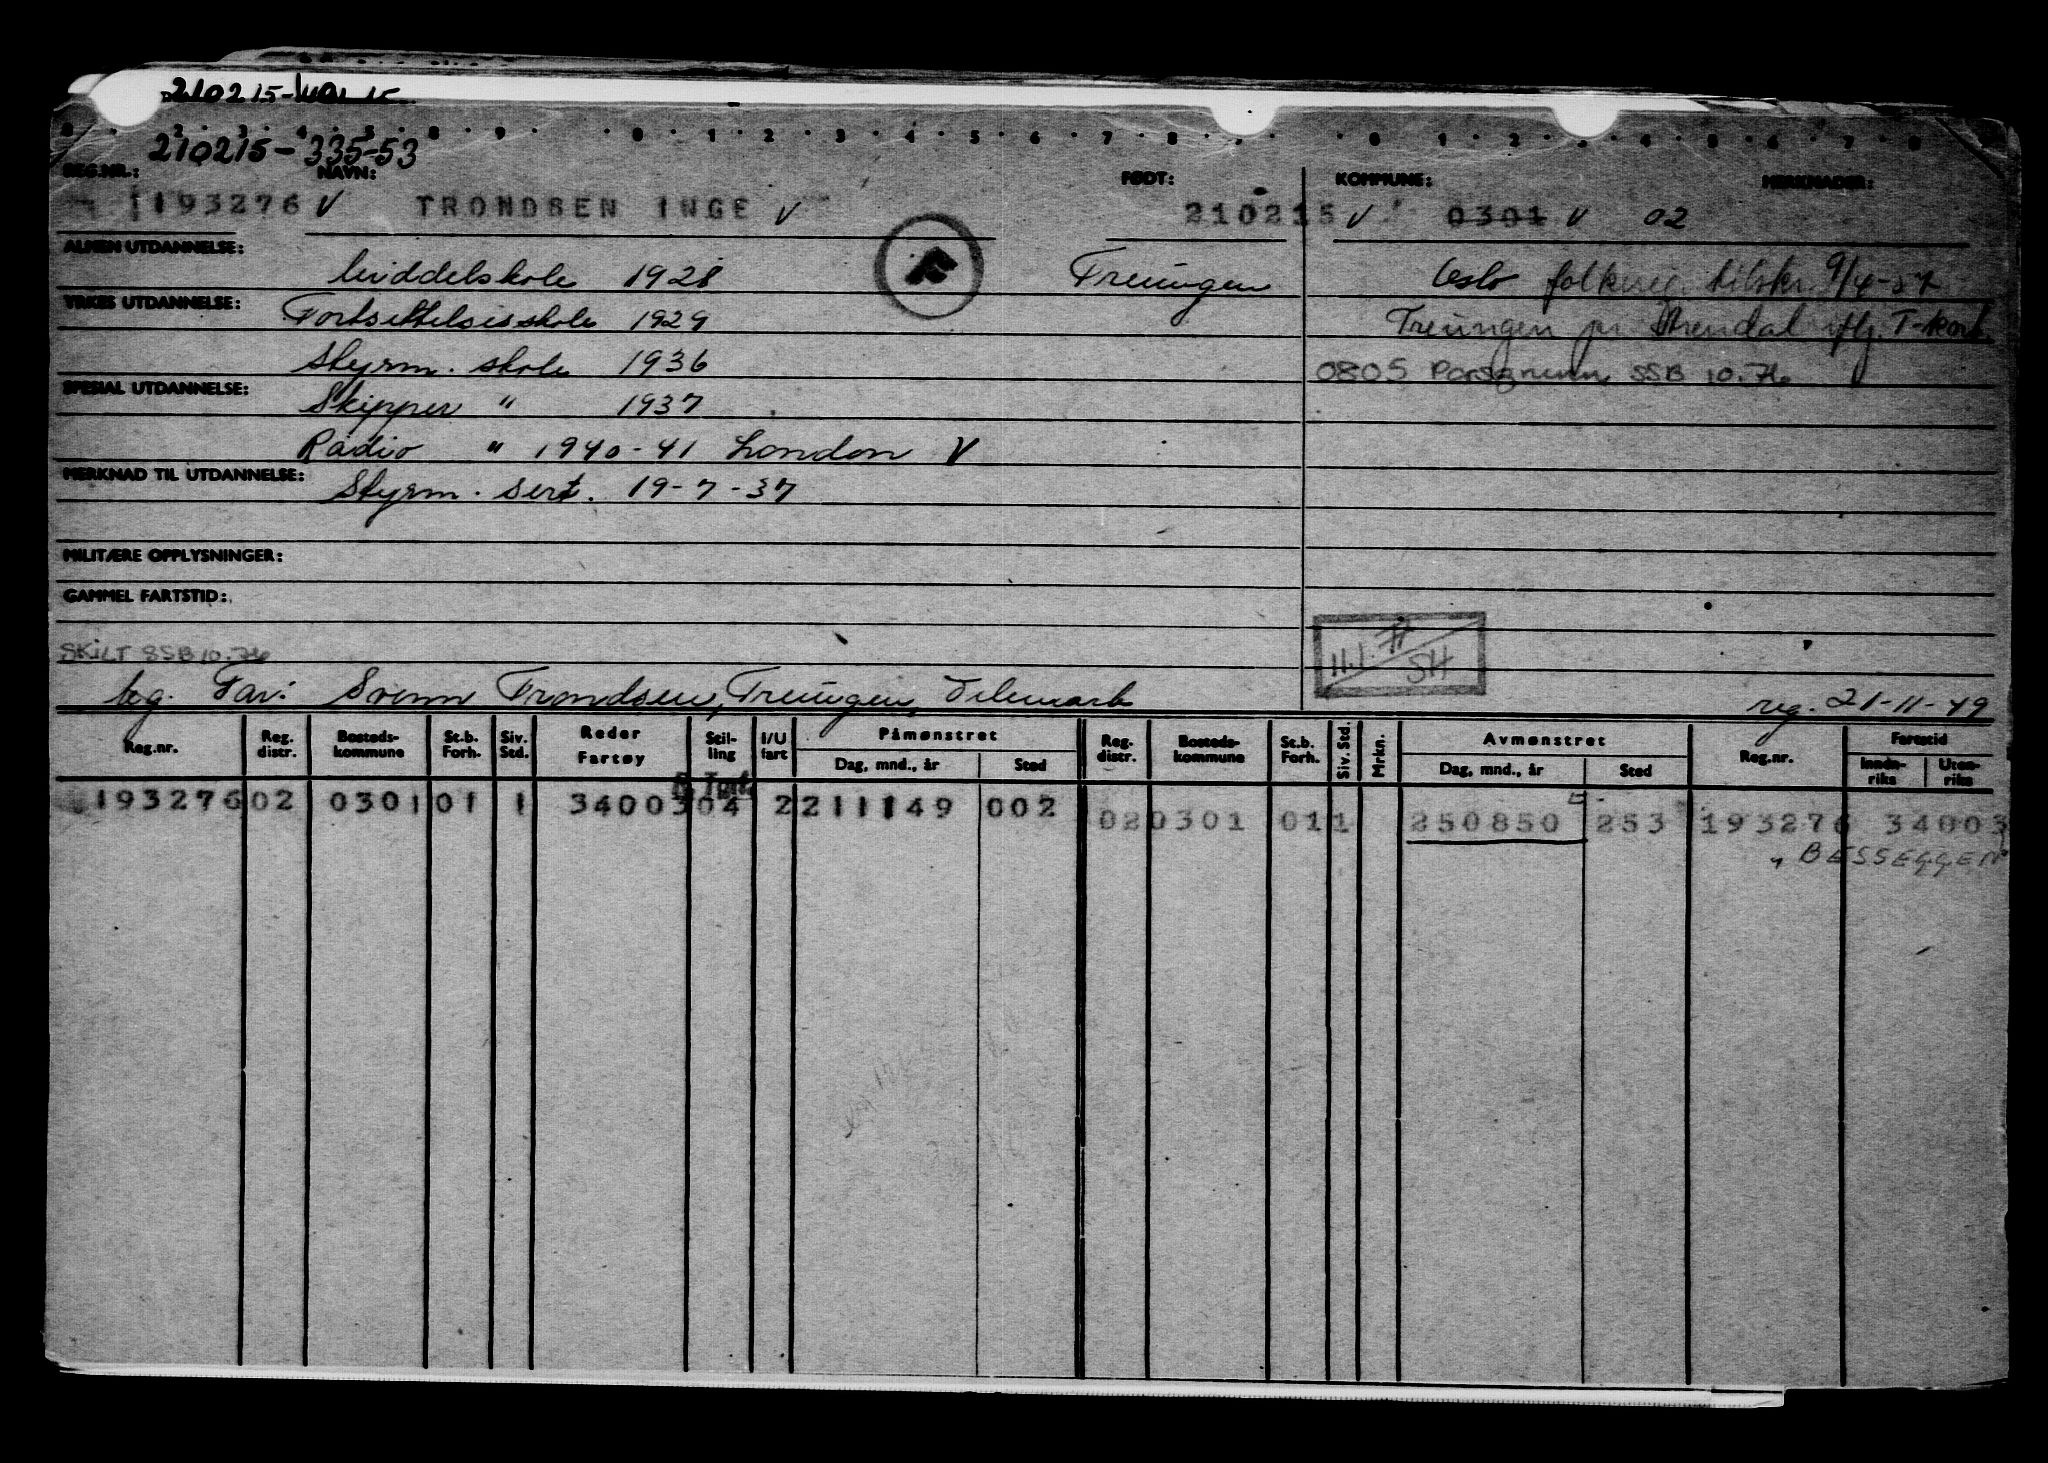 210215-
8 . 2 . 3 . 4 . 5 . 8 . 9 . 0 . 1 . 2 . 3 . 4 . 5 . 6 . 7 . 8 . 0 . 1 . 2 . 3 . 4 . 5 . 6 . 7 . 8
210215-335-53
REG.NR.: NAVN: FØDT: KOMMUNE: MERKNADER:
193276 V TRONDSEN INGE V 210215 V 0301 V 02
ALMEN UTDANNELSE: Middelskole 1928 Treungen Oslo folkereg. tilskr. 9/4-57
YRKES UTDANNELSE: Fortsettelsesskole 1929 Treungen pr. Arendal iflg. T-kort.
Styrm. skole 1936 0805 Porsgrunn SSB 10.76
SPESIAL UTDANNELSE: Skipper " 1937
Radio " 1940-41 London V
MERKNAD TIL UTDANNELSE: Styrm. sert. 19-7-37
MILITÆRE OPPLYSNINGER:
GAMMEL FARTSTID:
SKILT SSB 10.76
H.I. SH
beg. Far: Svenn Trondsen, Treungen, Telemark reg. 21-11-49
Reg.nr. Reg. distr. Bosteds- kommune St.b. Forh. Siv. Std. Reder Fartøy Stil- ling I/U fart Påmønstret Dag, mnd., år Sted Reg. distr. Bosteds- kommune St.b. Forh. Siv. Std. Mrkn. Avmønstret Dag, mnd., år Sted Reg.nr. Fartstid Innen- riks Uten- riks
193276 02 0301 01 1 34003 04 2 211149 002
02 0301 01 1 250850 253 193276 34003
"BESSEGGEN"